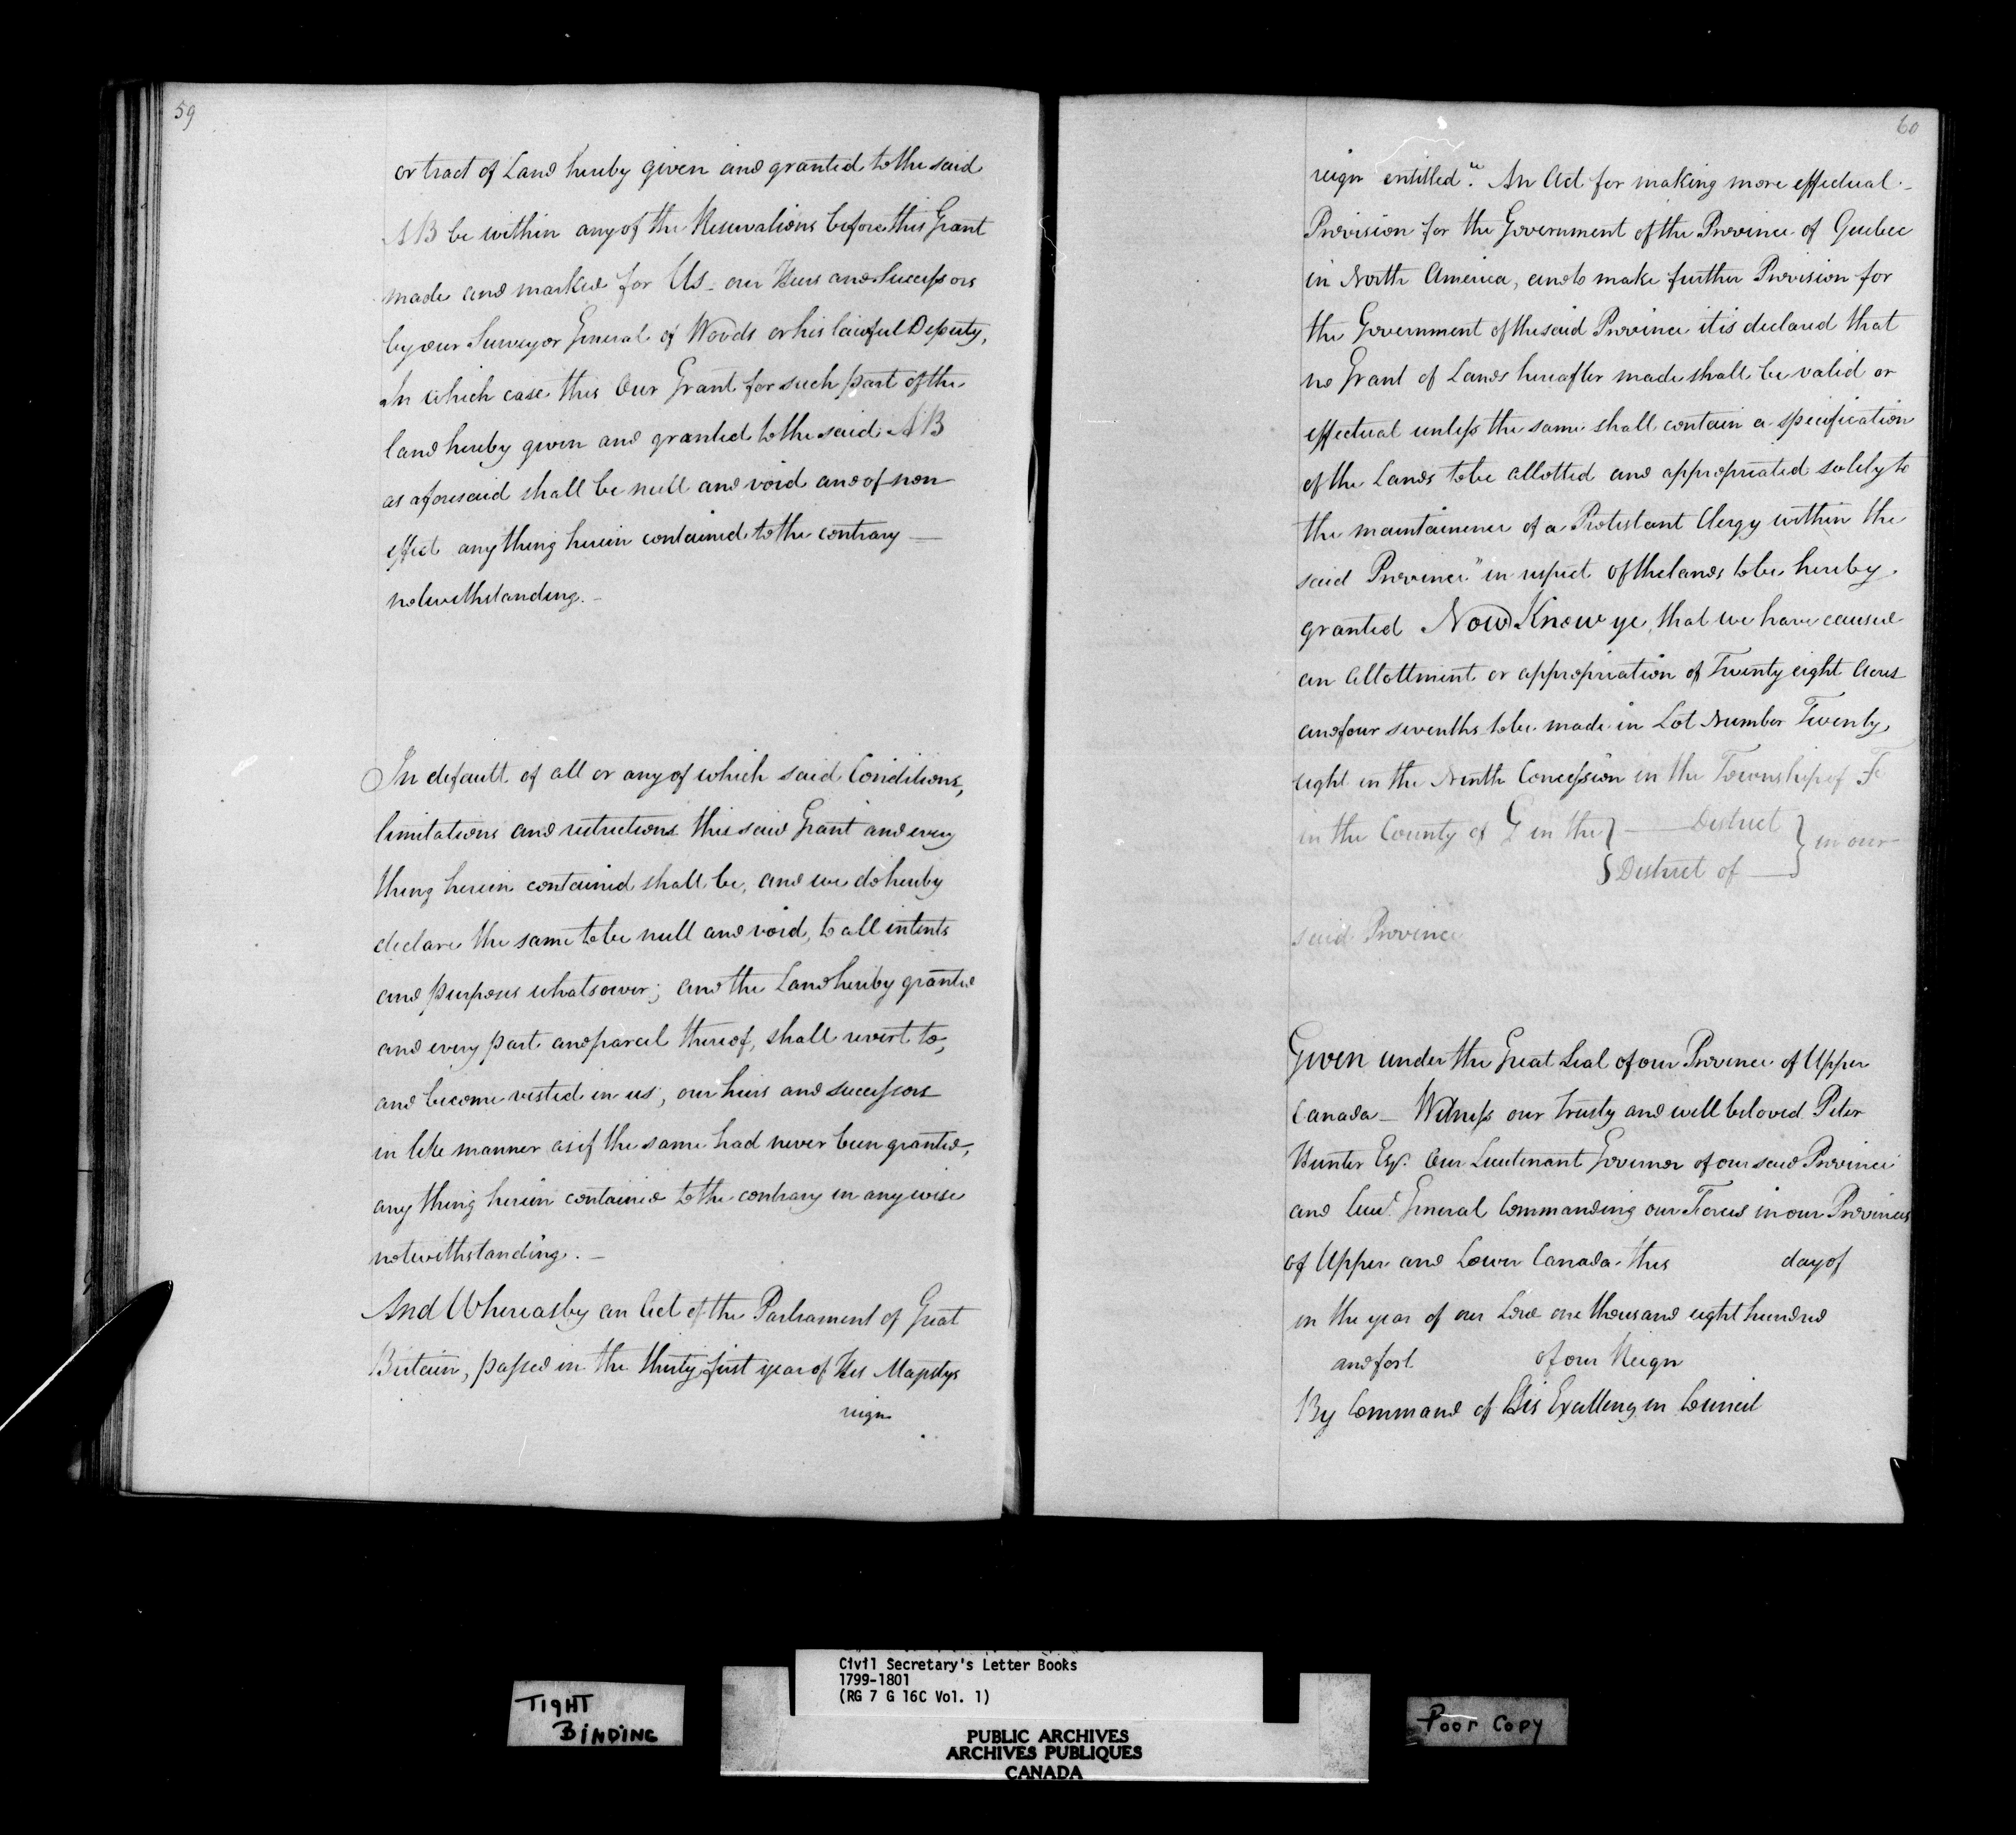 59
or tract of Land hereby given and granted to the said
AB be within any of the Reservations before this Grant
made and marked for Us our Heirs and Successors
by our Surveyor General of Woods or his lawful Deputy,
In which case this Our Grant for such part of the
land hereby given and granted to the said AB
as aforesaid shall be null and void and of non
effect any thing herein contained to the contrary —
notwithstanding. –
In default of all or any of which said Conditions,
limitations and restrictions this said Grant and every
thing herein contained shall be, and we do hereby
declare the same to be null and void, to all intents
and purposes whatsoever; and the Land hereby granted
and every part and parcel thereof, shall revert to,
and become vested in us, our heirs and successors
in like manner as if the same had never been granted,
any thing herein contained to the contrary in any wise
notwithstanding. –
And Whereas by an Act of the Parliament of Great
Britain, passed in the thirty first year of His Majestys
reign
60
reign entitled "An Act for making more effectual
Provision for the Government of the Province of Quebec
in North America, and to make further Provision for
the Government of the said Province it is declared that
no Grant of Lands hereafter made shall be valid or
effectual unless the same shall contain a specification
of the Lands to be allotted and appropriated solely to
the maintainence of a Protestant Clergy within the
said Province" in respect of the lands to be hereby
granted Now Know ye, that we have caused
an Allottment or appropriation of Twenty eight Acres
and four sevenths to be made in Lot Number Twenty
eight in the Ninth Concession in the Township of F
in the County of G in the } — District } in our
{ District of — }
said Province
Given under the Great Seal of our Province of Upper
Canada – Witness our trusty and well beloved Peter
Hunter Esqr. Our Lieutenant Governor of our said Province
and Lieut. General Commanding our Forces in our Provinces
of Upper and Lower Canada this day of
in the year of our Lord one thousand eight hundred
and fort of our Reign
By Command of His Excellency in Council
TIGHT
BINDING
Civil Secretary's Letter Books
1799-1801
(RG 7 G 16C Vol. 1)
PUBLIC ARCHIVES
ARCHIVES PUBLIQUES
CANADA
Poor Copy